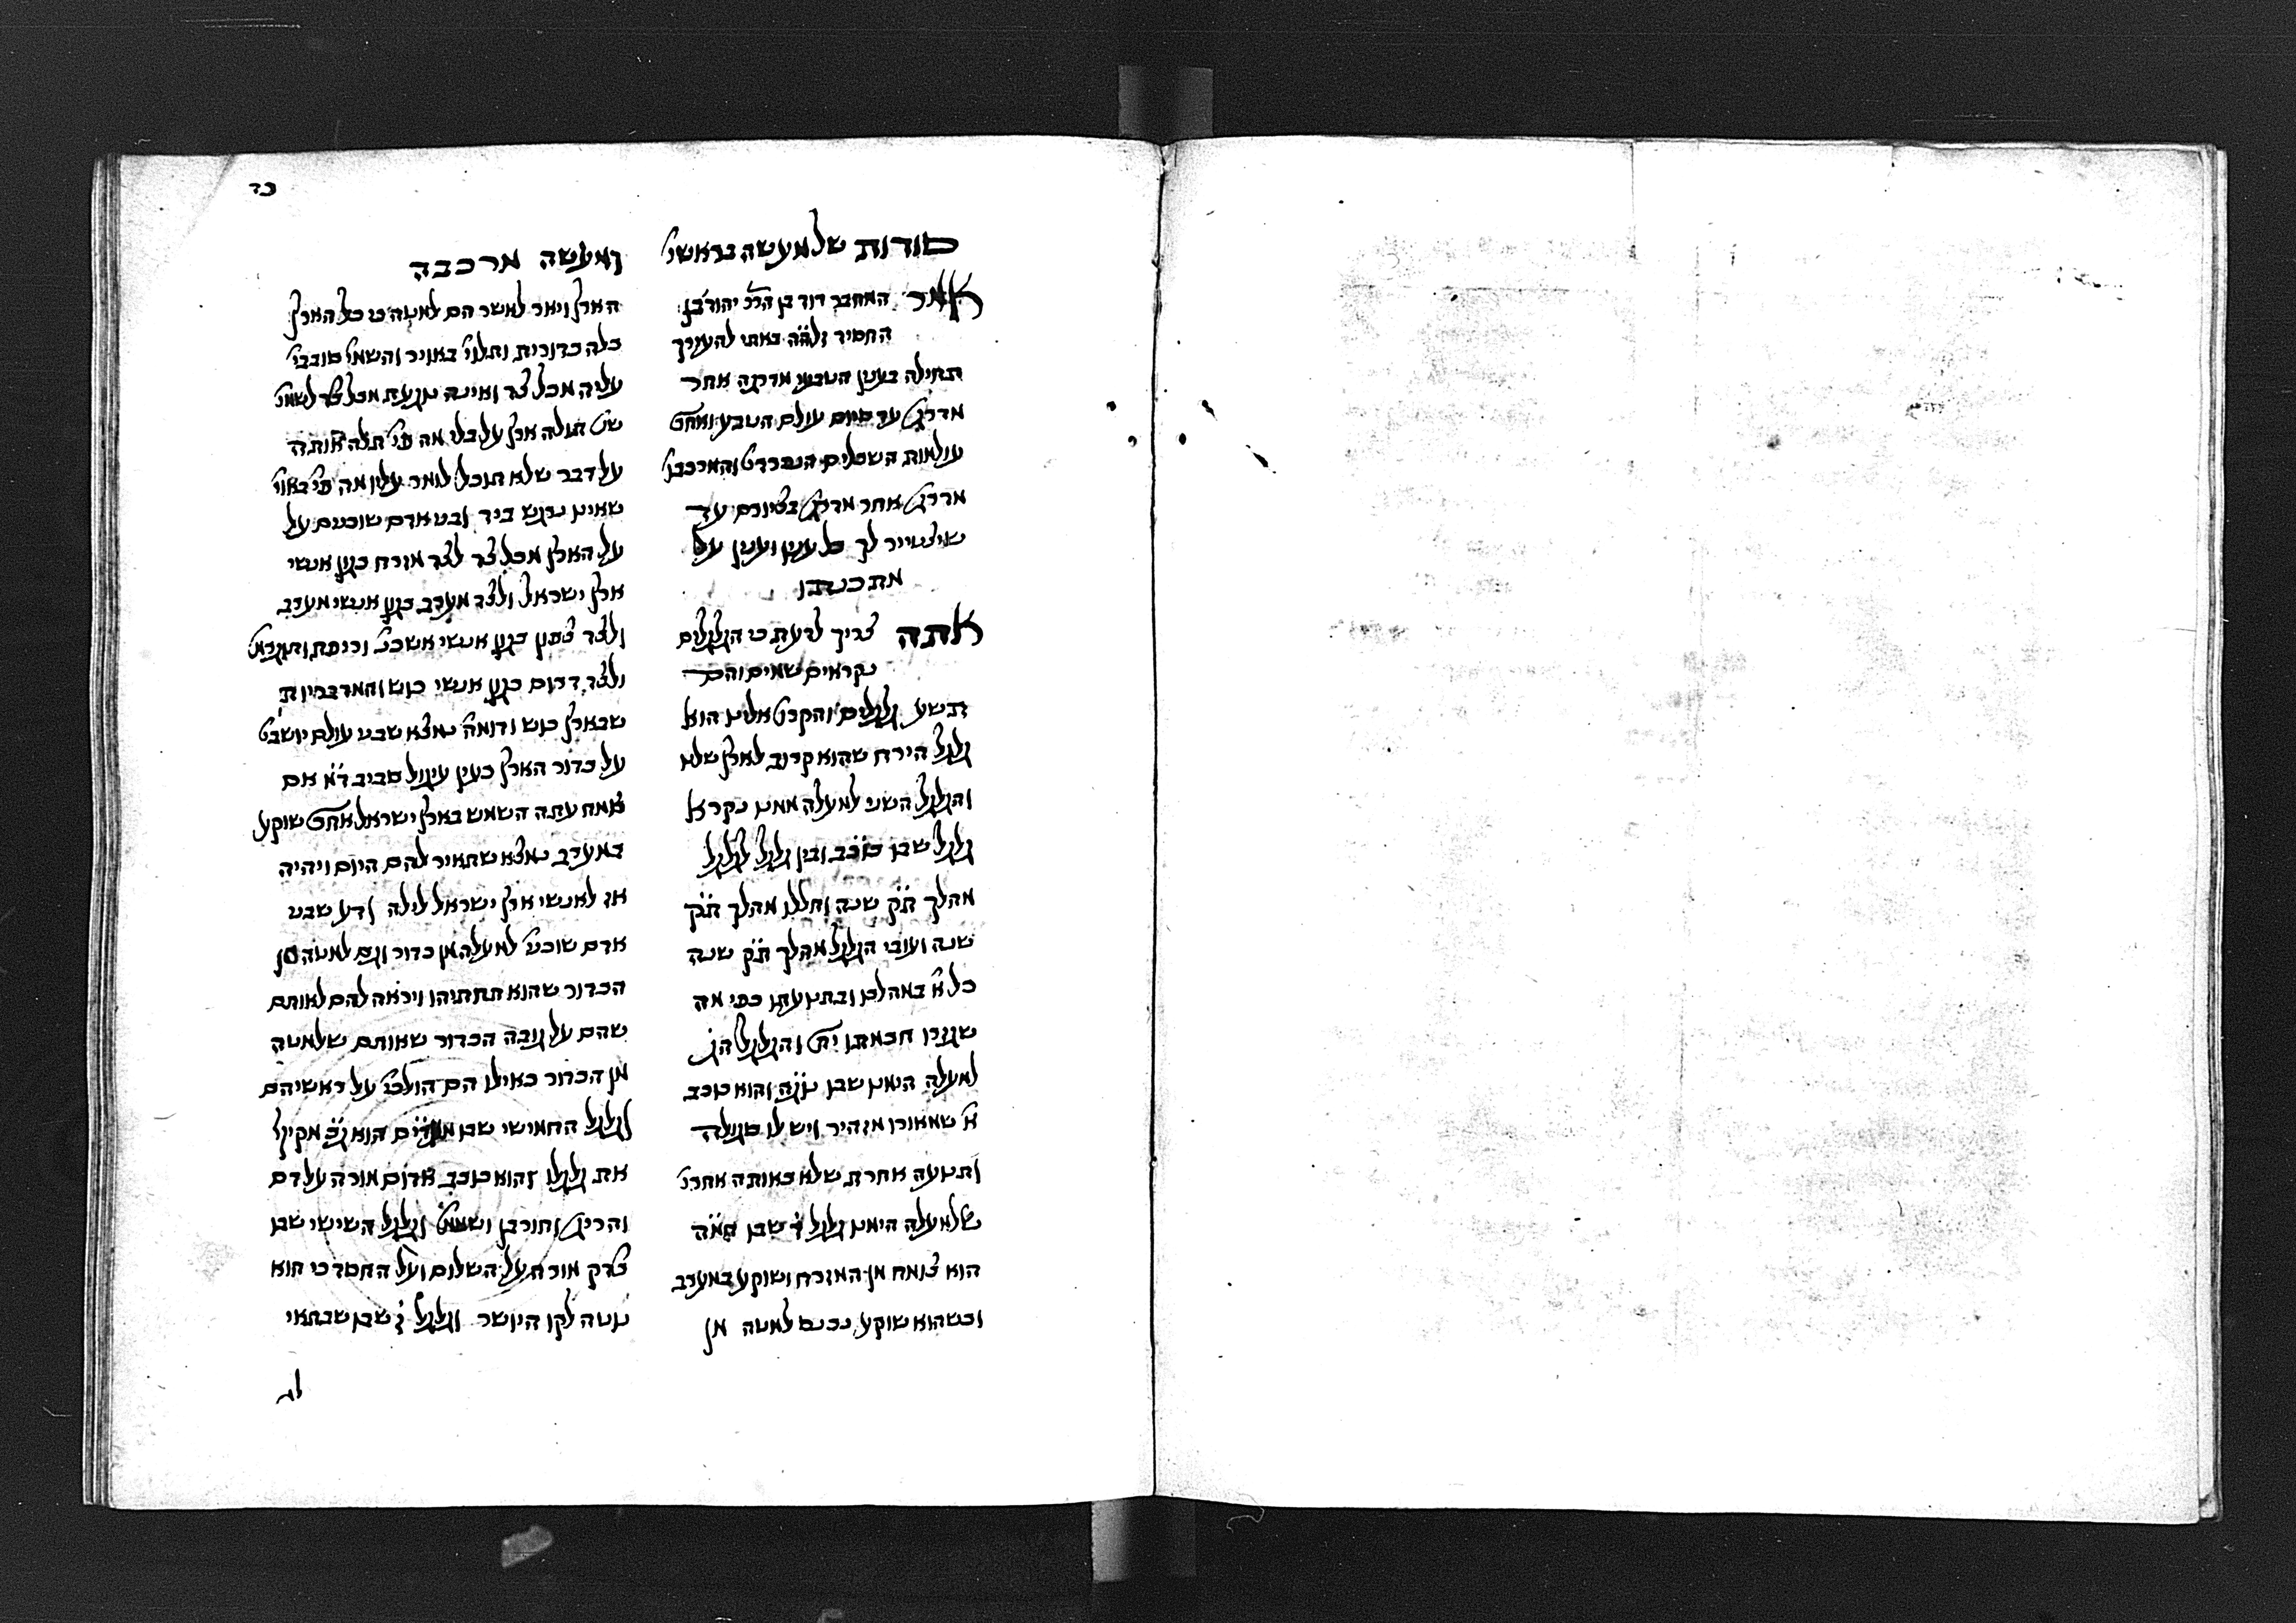 כד
סודות של מעשה בראשי'
ומעשה מרכבה
אמר המחבר דוד בן הר' יהוד' בן
החסיד זלה"ה באתי להעירך
תחילה בענין הטבעי מדרגה אחר
מדרג' עד סיום עולם הטבע ואח"כ
עולמות השכלים הנפרדי' והמרכבו'
מדרג' אחר מדרג' בציורם עד
שיצטייר לך כל ענין וענין על
מתכונתו
אתה צריך לדעת כי הגלגלים
נקראים שמים והם
תשע גלגלים והקרוב אלינו הוא
גלגל הירח שהוא קרוב לארץ שלנו
והגלגל השני למעלה ממנו נקרא
גלגל שבו כוכב ובין גלגל לגלגל
מהלך ת"ק שנה וחללו מהלך ת"ק
שנה ועובי הגלגל מהלך ת"ק שנה
כל א' במהלכו ובתנועתו כפי מה
שגזרה חכמתו ית' והגלגל הג'
למעלה הימנו שבו נוגה והוא כוכב
א' שמאורו מזהיר ויש לו סגולה
ותנועה אחרת שלא כאותה אחרי'
שלמעלה הימנו גלגל ד' שבו חמה
הוא צומח מן המזרח ושוקע במערב
וכשהוא שוקע נכנס למטה מן
הארץ ויאר לאשר הם למטה כי כל הארץ
כלה כדורית ותלוי' באויר והשמי' סובבי'
עליה מכל צד ואינה נוגעת מכל צד לשמי'
שנ' תולה ארץ על בלי מה פי' תלה אותה
על דבר שלא תוכל לומר עליו מה פי' באוי'
שאינו נרגש ביד ובני אדם שוכנים על
על הארץ מכל צד לצד מזרח כגון אנשי
ארץ ישראל ולצד מערב כגון אנשי מערב
ולצד צפון כגון אנשי אשכנז וכיפת ותוגרמ'
ולצד דרום כגון אנשי כוש והמדבריות
שבארץ כוש ודומה נמצא שבני עולם יושבי'
על כדור הארץ כעין עיגול סביב ד"מ אם
צמח עתה השמש בארץ ישראל אח"כ שוקע
במערב נמצא שהאיר להם היום ויהיה
אז לאנשי ארץ ישראל לילה ודע שבני
אדם שוכני' למעלה מן כדור וגם למטה מן
הכדור שהוא תחתיהו ויראה להם לאותם
שהם על גובה הכדור שאותם שלמטה
מן הכדור כאילו הם הולכי' על ראשיהם
וגלגל החמישי שבו מאדים הוא ג"כ מקיף
את גלגלו והוא כוכב אדום מורה על דם
והריג' וחורבן ושממ' וגלגל הששי שבו
צדק מורה על השלום ועל החסד כי הוא
נוטה לקו היושר וגלגל ז' שבו שבתאי